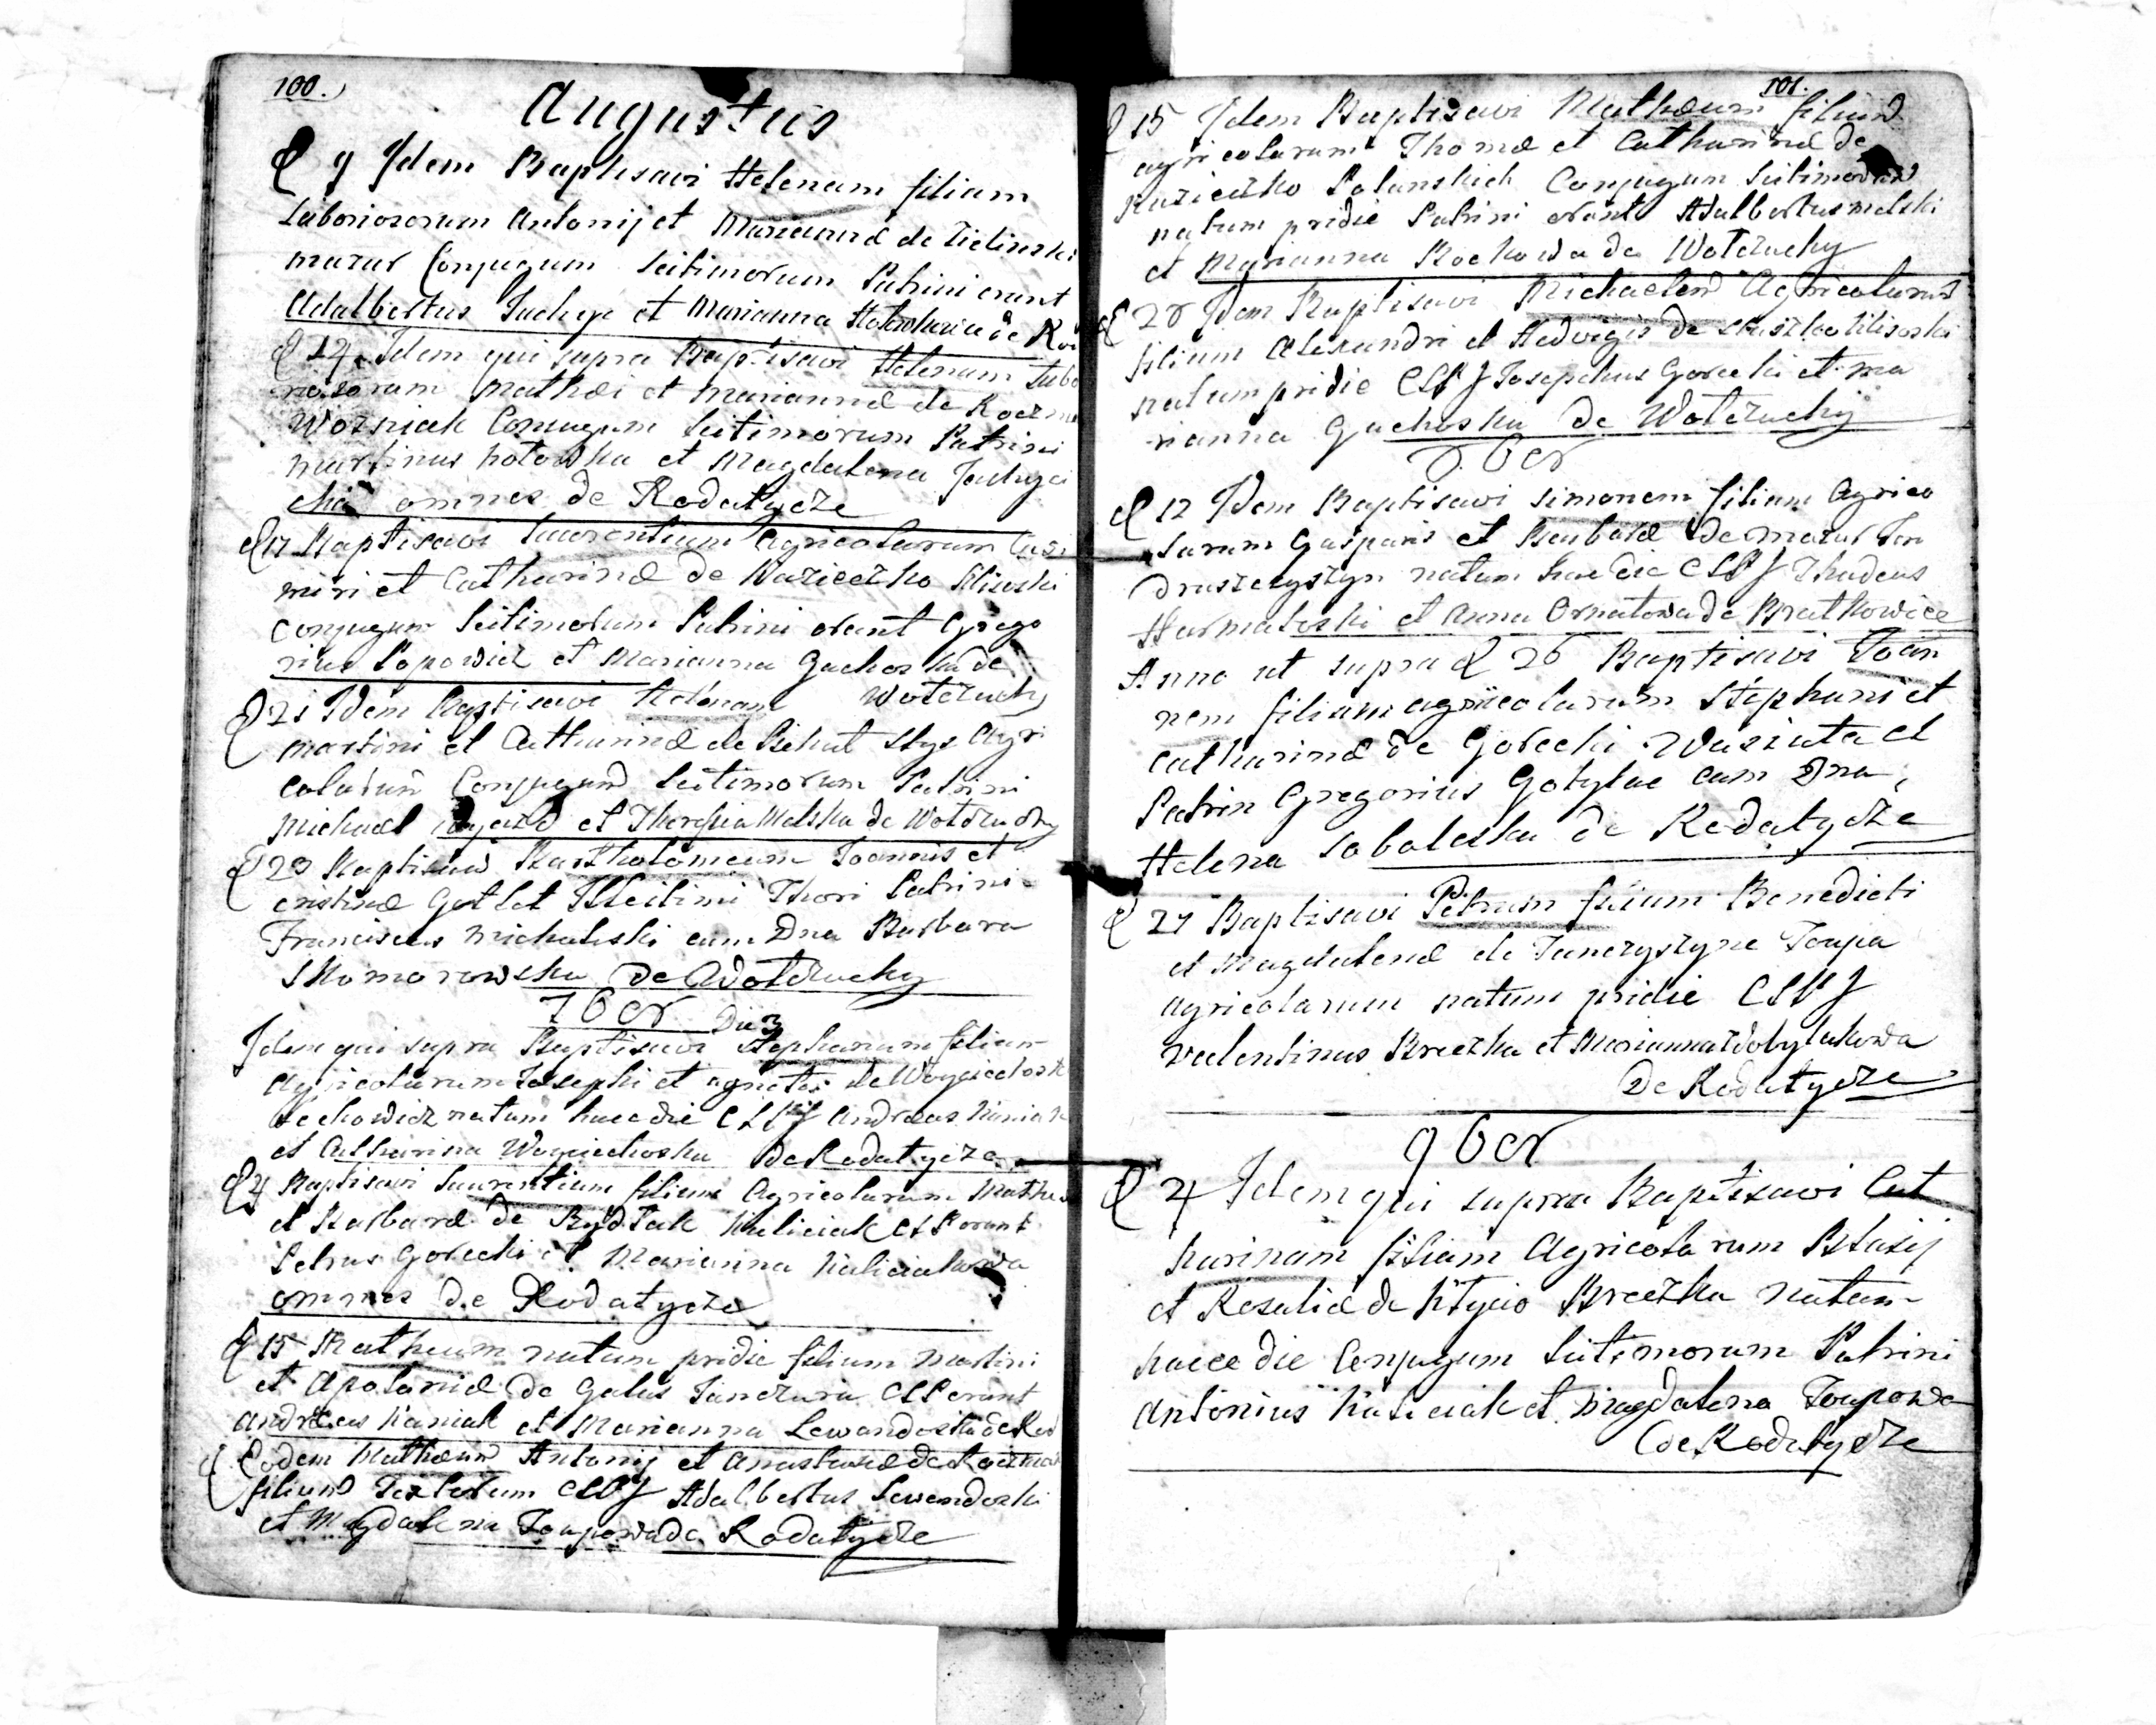 100.
Augustus
9 Idem Baptisavi Helenam filiam
Laboriosorum Antonij et Mariannæ de Zielinski
mazur Conjugum Leitimorum Patrini erant
Adalbertus Juchyr et Marianna
12 Idem qui supra Baptisavi Helenam Labo
riosorum Mathei et Mariannæ de Kaczma
Wozniak Conjugum Leitimorum Patrini
Martinus hotowka et Magdalena
omnes de Rodatycze
17 Baptisavi Laurentium Agricolarum Casi
miri et Catharinæ de Kazieczko
Conjugum Leitimorum Patrini erant Grego
rius Popowicz et Marianna Guchoska de
Wolczuchy
21 Idem Baptisavi Helenam
Martini et Catharinæ de
colarum Conjugum Leitimorum Patrini
Michael et Theresia Melska de Wolczuchy
23 Baptisavi Bartholomeum Joannis et
cristinæ Thori Patrini
Franciscus Michalski cum Dna Barbara
Skomorowska de Wolczuchy
7ber Die 3
Idem qui supra Baptisavi Stephanum filium
Agricolarum Josephi et agnetis de Woyciechosk
Lechowicz natum hacce die CLPf Andreas Kaniak
et Catharina Woyciechoska de Rodatycze
4 Baptisavi Laurentium filium Agricolarum Mathei
et Barbaræ de Kuliciak CLP erant
Petrus Gorecki et Marianna Kaliciakowa
omnes de Rodatycze
15 Matheum natum pridie filium Martini
et Apoloniæ de Galus Janczura CLP erant
Andreas Kaniak et Marianna Lewandoska de Rod
Eodem Mathæum Antonij et Anastasiæ de Kaczmar
filium Textorum CLPf Adalbertus Lewendoski
et Magdalena Toupowa de Rodatycze
101.
15 Idem Baptisavi Mathæum filium
agricolarum Thomæ et Catharinæ de
Kazieczko Polanskich Conjugum Leitimorum
natum pridie Patrini erant Adalbertus Melski
et Marianna Rockowa de Wolczuchy
28 Idem Baptisavi Michaelem Agricolarum
filium Alexandri et Hedvigis de
natum pridie CLPf Josephus Gorecki et Ma
rianna Guchoska de Wolczuchy
8ber
12 Idem Baptisavi Simonem filium Agrico
larum Gasparis et Barbaræ de Mazur Jan
druszczyszyn natum hac die CLPf Thadeus
Harmatoski et Anna Ornatowa de Bratkowice
Anno ut supra 26 Baptisavi Joan
nem filium agricolarum Stephani et
Catharinæ de Gorecki Wasiuta et
Patrin Gregorius Gotylac cum Dna
Helena Sobaleska de Rodatycze
27 Baptisavi Petrum filium Benedicti
et Magdalenæ de Janczyszyne Toupa
agricolarum natum pridie CLPf
Valentinus Breczka et Marianna Zdobylakowa
De Rodatycze
9ber
4 Idem qui supra Baptisavi Cat
harinam filiam Agricolarum Blasij
et Rosaliæ de Htycio Breczka natam
hacce die Conjugum Leitimorum Patrini
Antonius Kaliciak et Magdalena Toupowa
de Rodatycze